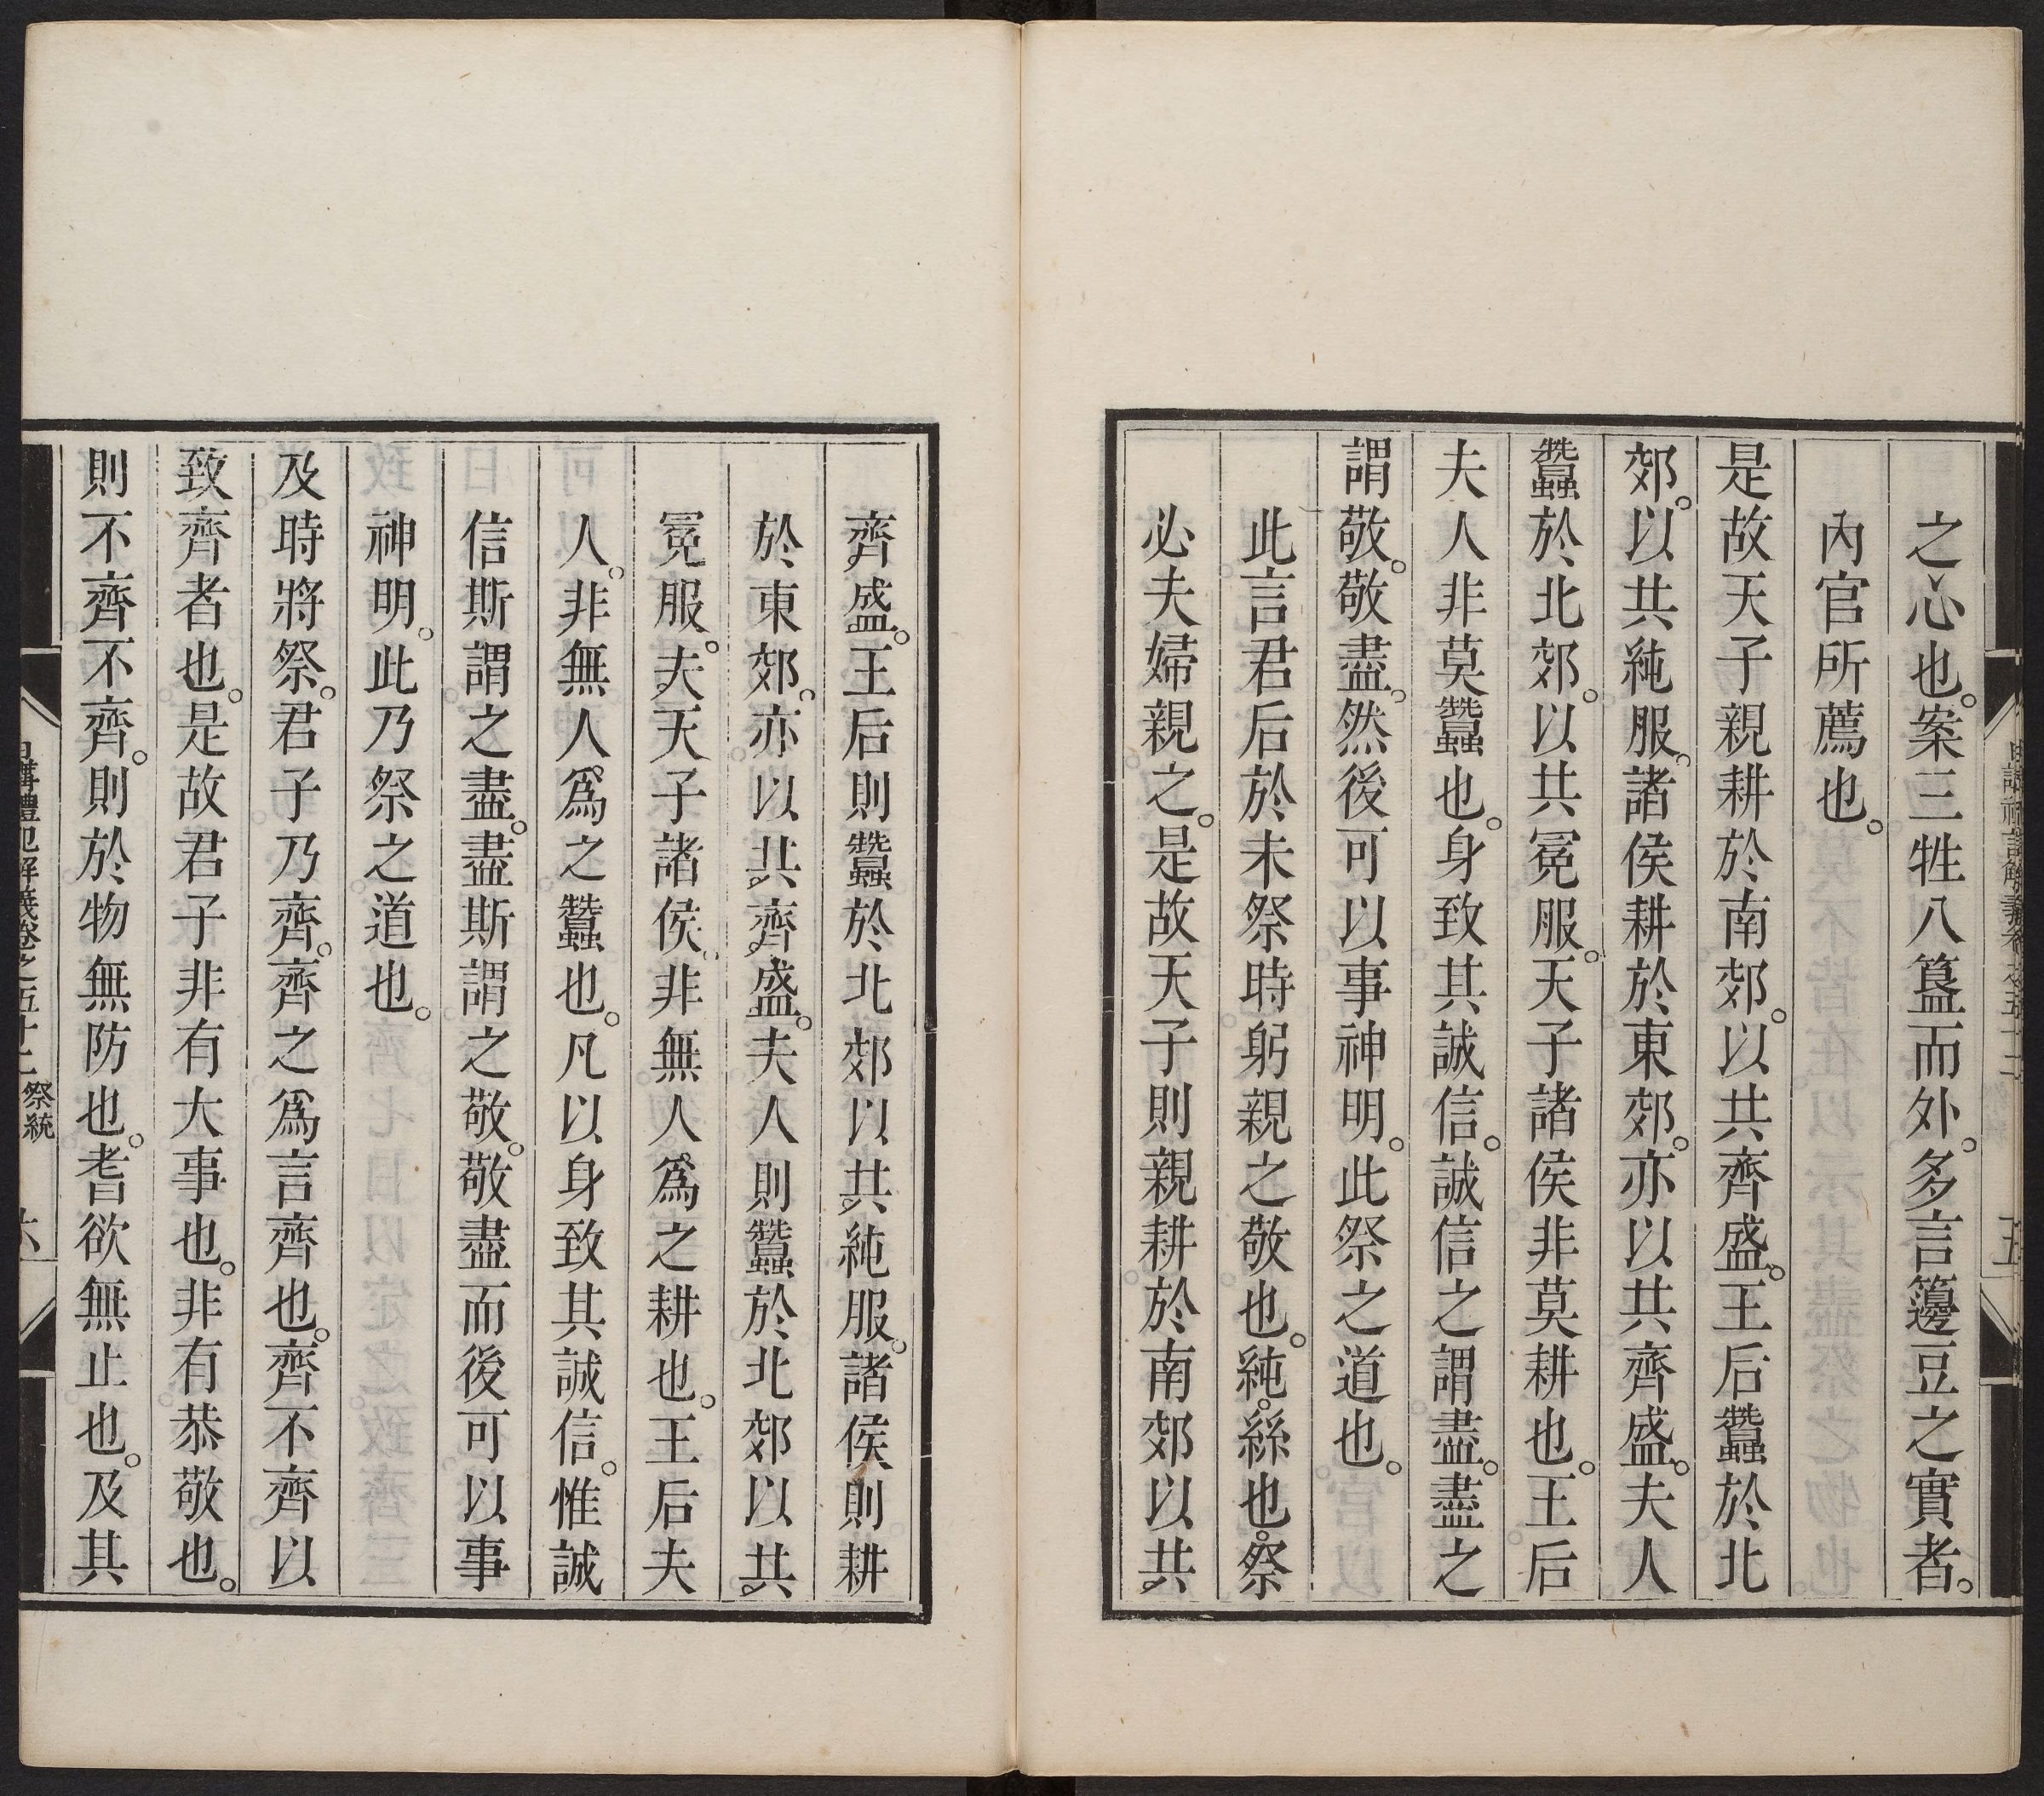 之心也。案三牲八簋而外。多言籩豆之實者。
內官所薦也。
是故天子親耕於南郊。以共齊盛。王后蠶於北
郊。以共純服。諸侯耕於東郊。亦以共齊盛。夫人
蠶於北郊。以共冕服。天子諸侯非莫耕也。王后
夫人非莫蠶也。身致其誠信。誠信之謂盡。盡之
謂敬。敬盡。然後可以事神明。此祭之道也。
此言君后於未祭時躬親之敬也。純。絲也。祭
必夫婦親之。是故天子則親耕於南郊以共
齊盛。王后則蠶於北郊以共純服。諸侯則耕
於東郊。亦以共齊盛。夫人則蠶於北郊以共
冕服。夫天子諸侯。非無人爲之耕也。王后夫
人。非無人爲之蠶也。凡以身致其誠信。惟誠
信斯謂之盡。盡斯謂之敬。敬盡而後可以事
神明。此乃祭之道也。
及時將祭。君子乃齊。齊之爲言齊也。齊不齊以
致齊者也。是故君子非有大事也。非有恭敬也。
則不齊不齊。則於物無防也。耆欲無止也。及其
日講禮記解義卷之五十二 祭統 六